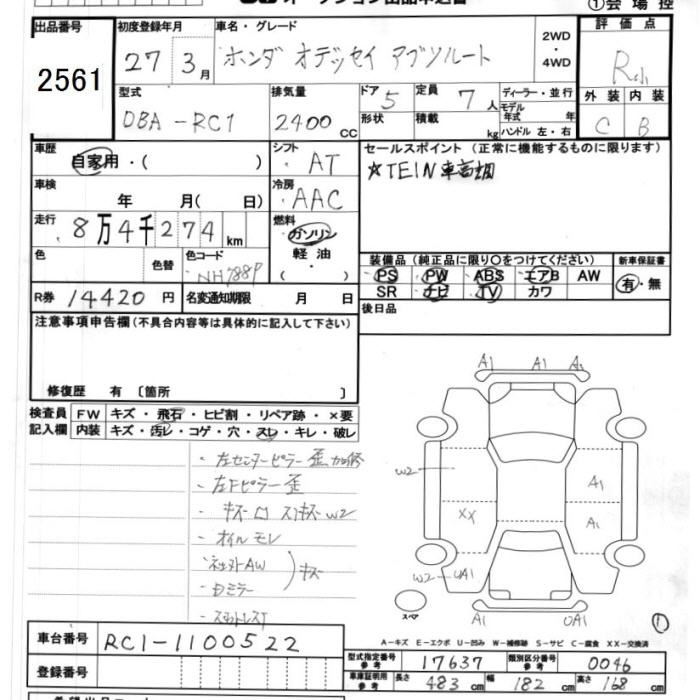 ①会場控
出品番号 2561
初度登録年月 27 3月
車名・グレード ホンダ オデッセイ アブソルート
2WD・4WD
評価点 R
外装 C 内装 B
型式 DBA-RC1
排気量 2400cc
ドア 5 形状
定員 7人 積載 kg
ディーラー・並行
モデル年式 年
ハンドル 左・右
車歴 自家用・( )
シフト AT
セールスポイント(正常に機能するものに限ります)
☆TEIN車高調
車検 年 月(日)
冷房 AAC
走行 8万4千274km
燃料 ガソリン 軽油 ・( )
色 色替 色コード NH788P
装備品(純正品に限り○をつけてください)
PS PW ABS エアB AW
SR ナビ TV カワ
新車保証書 有・無
R券 14420円
名変通知期限 月 日
後日品
注意事項申告欄(不具合内容等は具体的に記入して下さい)
修復歴 有〔箇所 〕
検査員記入欄
FW キズ・飛石・ヒビ割・リペア跡・×要
内装 キズ・汚レ・コゲ・穴・スレ・キレ・破レ
・左センターピラー歪、加修
・左Fピラー歪
・オイルモレ
・ミラー
キズ
A1 A1 A
W2 A1
XX A1
W2 UA1
スペア A1 UA1
①
A-キズ E-エクボ U-凹み W-補修跡 S-サビ C-腐食 XX-交換済
車台番号 RC1-1100522
登録番号
型式指定番号参考 17637 類別区分番号参考 0046
車庫証明用参考 長さ 483cm 幅 182cm 高さ 168cm